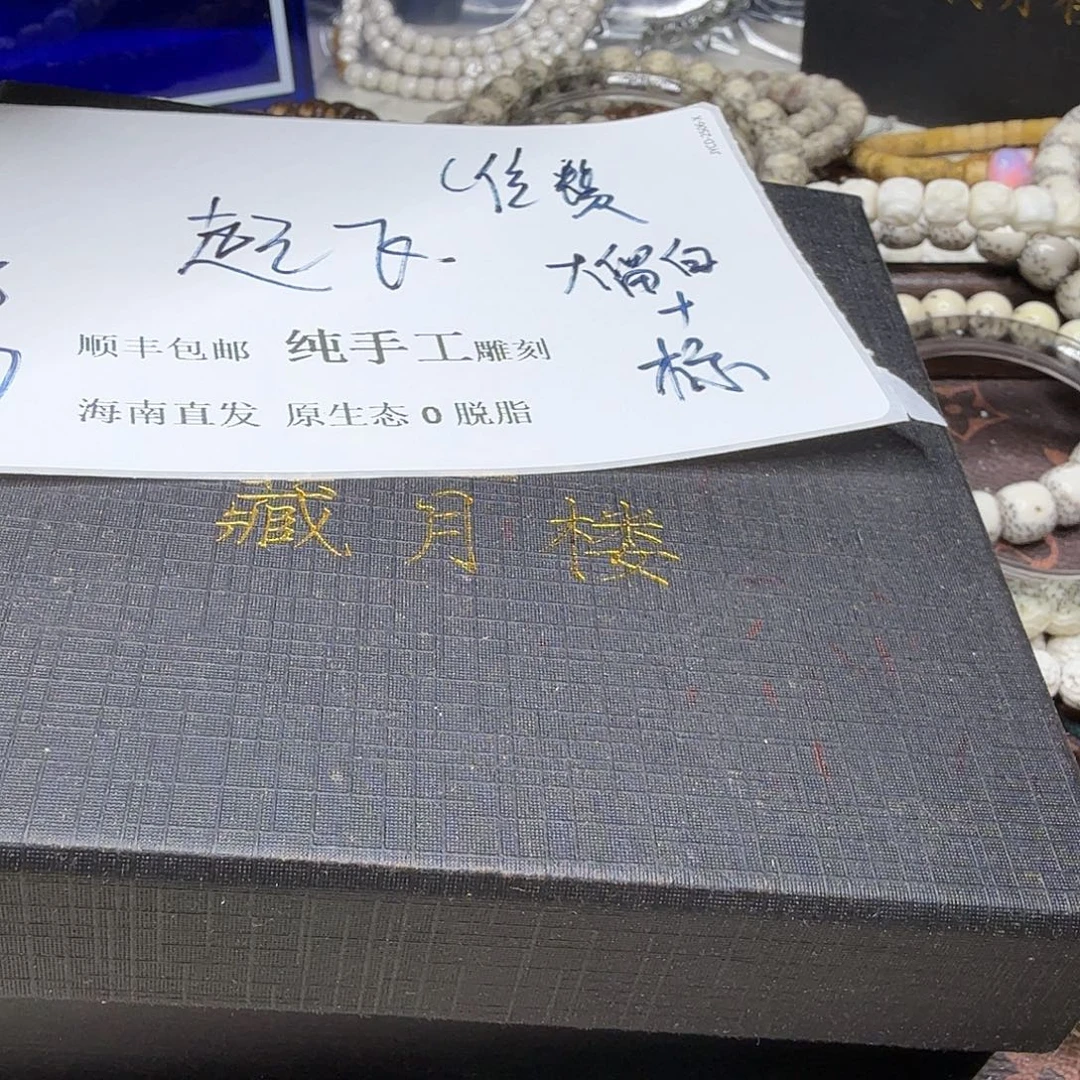 起飞
大留白
+
标
顺丰包邮 纯手工雕刻
海南直发 原生态0脱脂
藏月楼